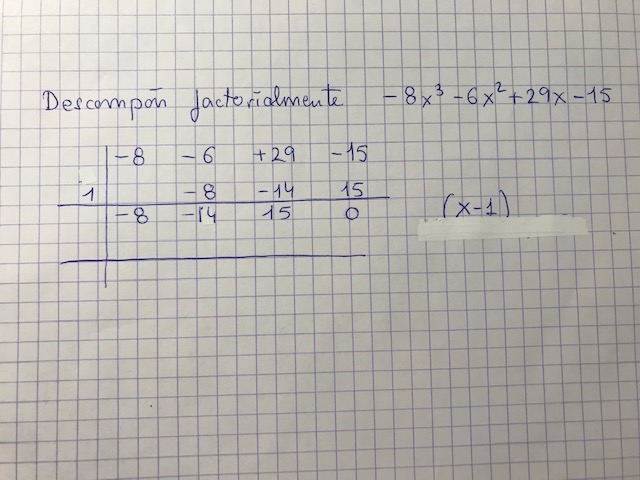 Descompón factorialmente -8x³ -6x² +29x -15
-8 -6 +29 -15
1 -8 -14 15
-8 -14 15 0
(x-1)